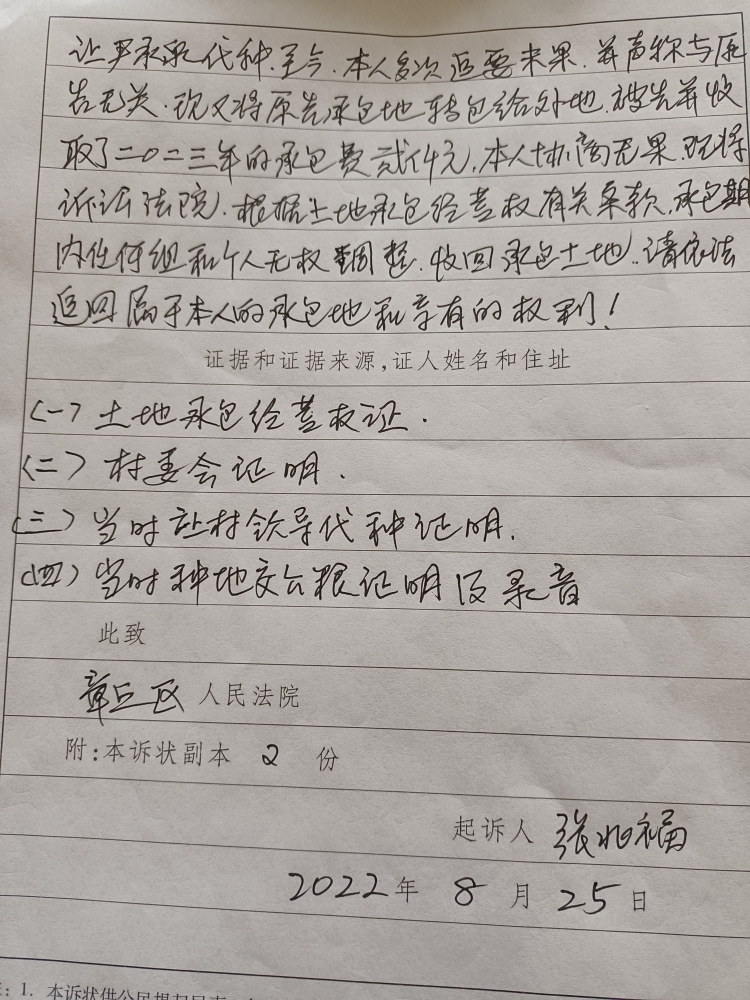 让尹承承代种.至今.本人多次追要未果.并声称与原
告无关.现又将原告承包地转包给外地.被告并收
取了二0二三年的承包费贰仟元.本人协商无果.现将
诉讼法院.根据土地承包经营权有关条款.承包期
内任何组和个人无权调整.收回承包土地.请依法
追回属于本人的承包地和享有的权利!
证据和证据来源,证人姓名和住址
(一)土地承包经营权证.
(二)村委会证明.
(三)当时让村领导代种证明.
(四)当时种地交公粮证明及录音
此致
章丘区人民法院
附:本诉状副本 2 份
起诉人 张兆福
2022年 8 月 25日
1. 本诉状供公民提起民事